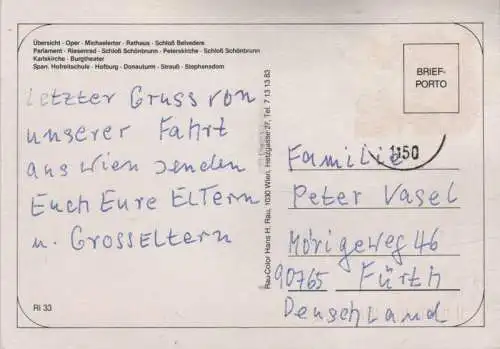 Übersicht · Oper · Michaelertor · Rathaus · Schloß Belvedere
Parlament · Riesenrad · Schloß Schönbrunn · Peterskirche · Schloß Schönbrunn
Karlskirche · Burgtheater
Span. Hofreitschule · Hofburg · Donauturm · Strauß · Stephansdom
Letzter Gruss von
unserer Fahrt
aus Wien senden
Euch Eure Eltern
u. Grosseltern
RI 33
Rau-Color Hans H. Rau, 1030 Wien, Hetzgasse 27, Tel. 7 13 13 83
BRIEF-
PORTO
1:50
Familie
Peter Vasel
Mörigeweg 46
90765 Fürth
Deuschland